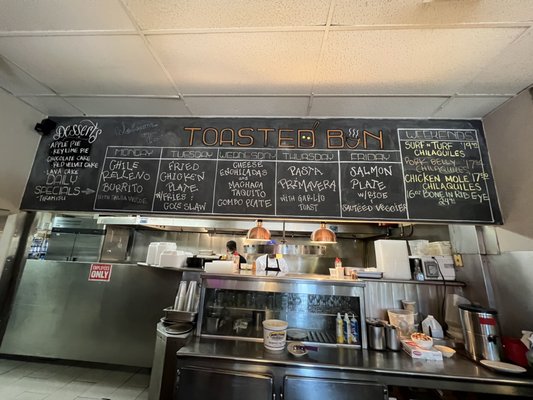 Desserts
APPLE PIE
KEY LIME PIE
CHOCOLATE CAKE
RED VELVET CAKE
LAVA CAKE
DAILY
SPECIALS
TIRAMISU
TOASTED BUN
MONDAY
CHILE
RELLENO
BURRITO
TUESDAY
FRIED
CHICKEN
PLATE
COLE SLAW
WEDNESDAY
CHEESE
ENCHILADAS
MACHACA
TAQUITO
COMBO PLATE
THURSDAY
PASTA
PRIMAVERA
WITH GARLIC
TOAST
FRIDAY
SALMON
PLATE
W/ RICE
SAUTEED VEGGIES
WEEKENDS
SURF N TURF
CHILAQUILES
PORK BELLY
CHILAQUILES
CHICKEN MOLE
CHILAQUILES
16oz BONE IN RIB EYE
EMPLOYEES
ONLY